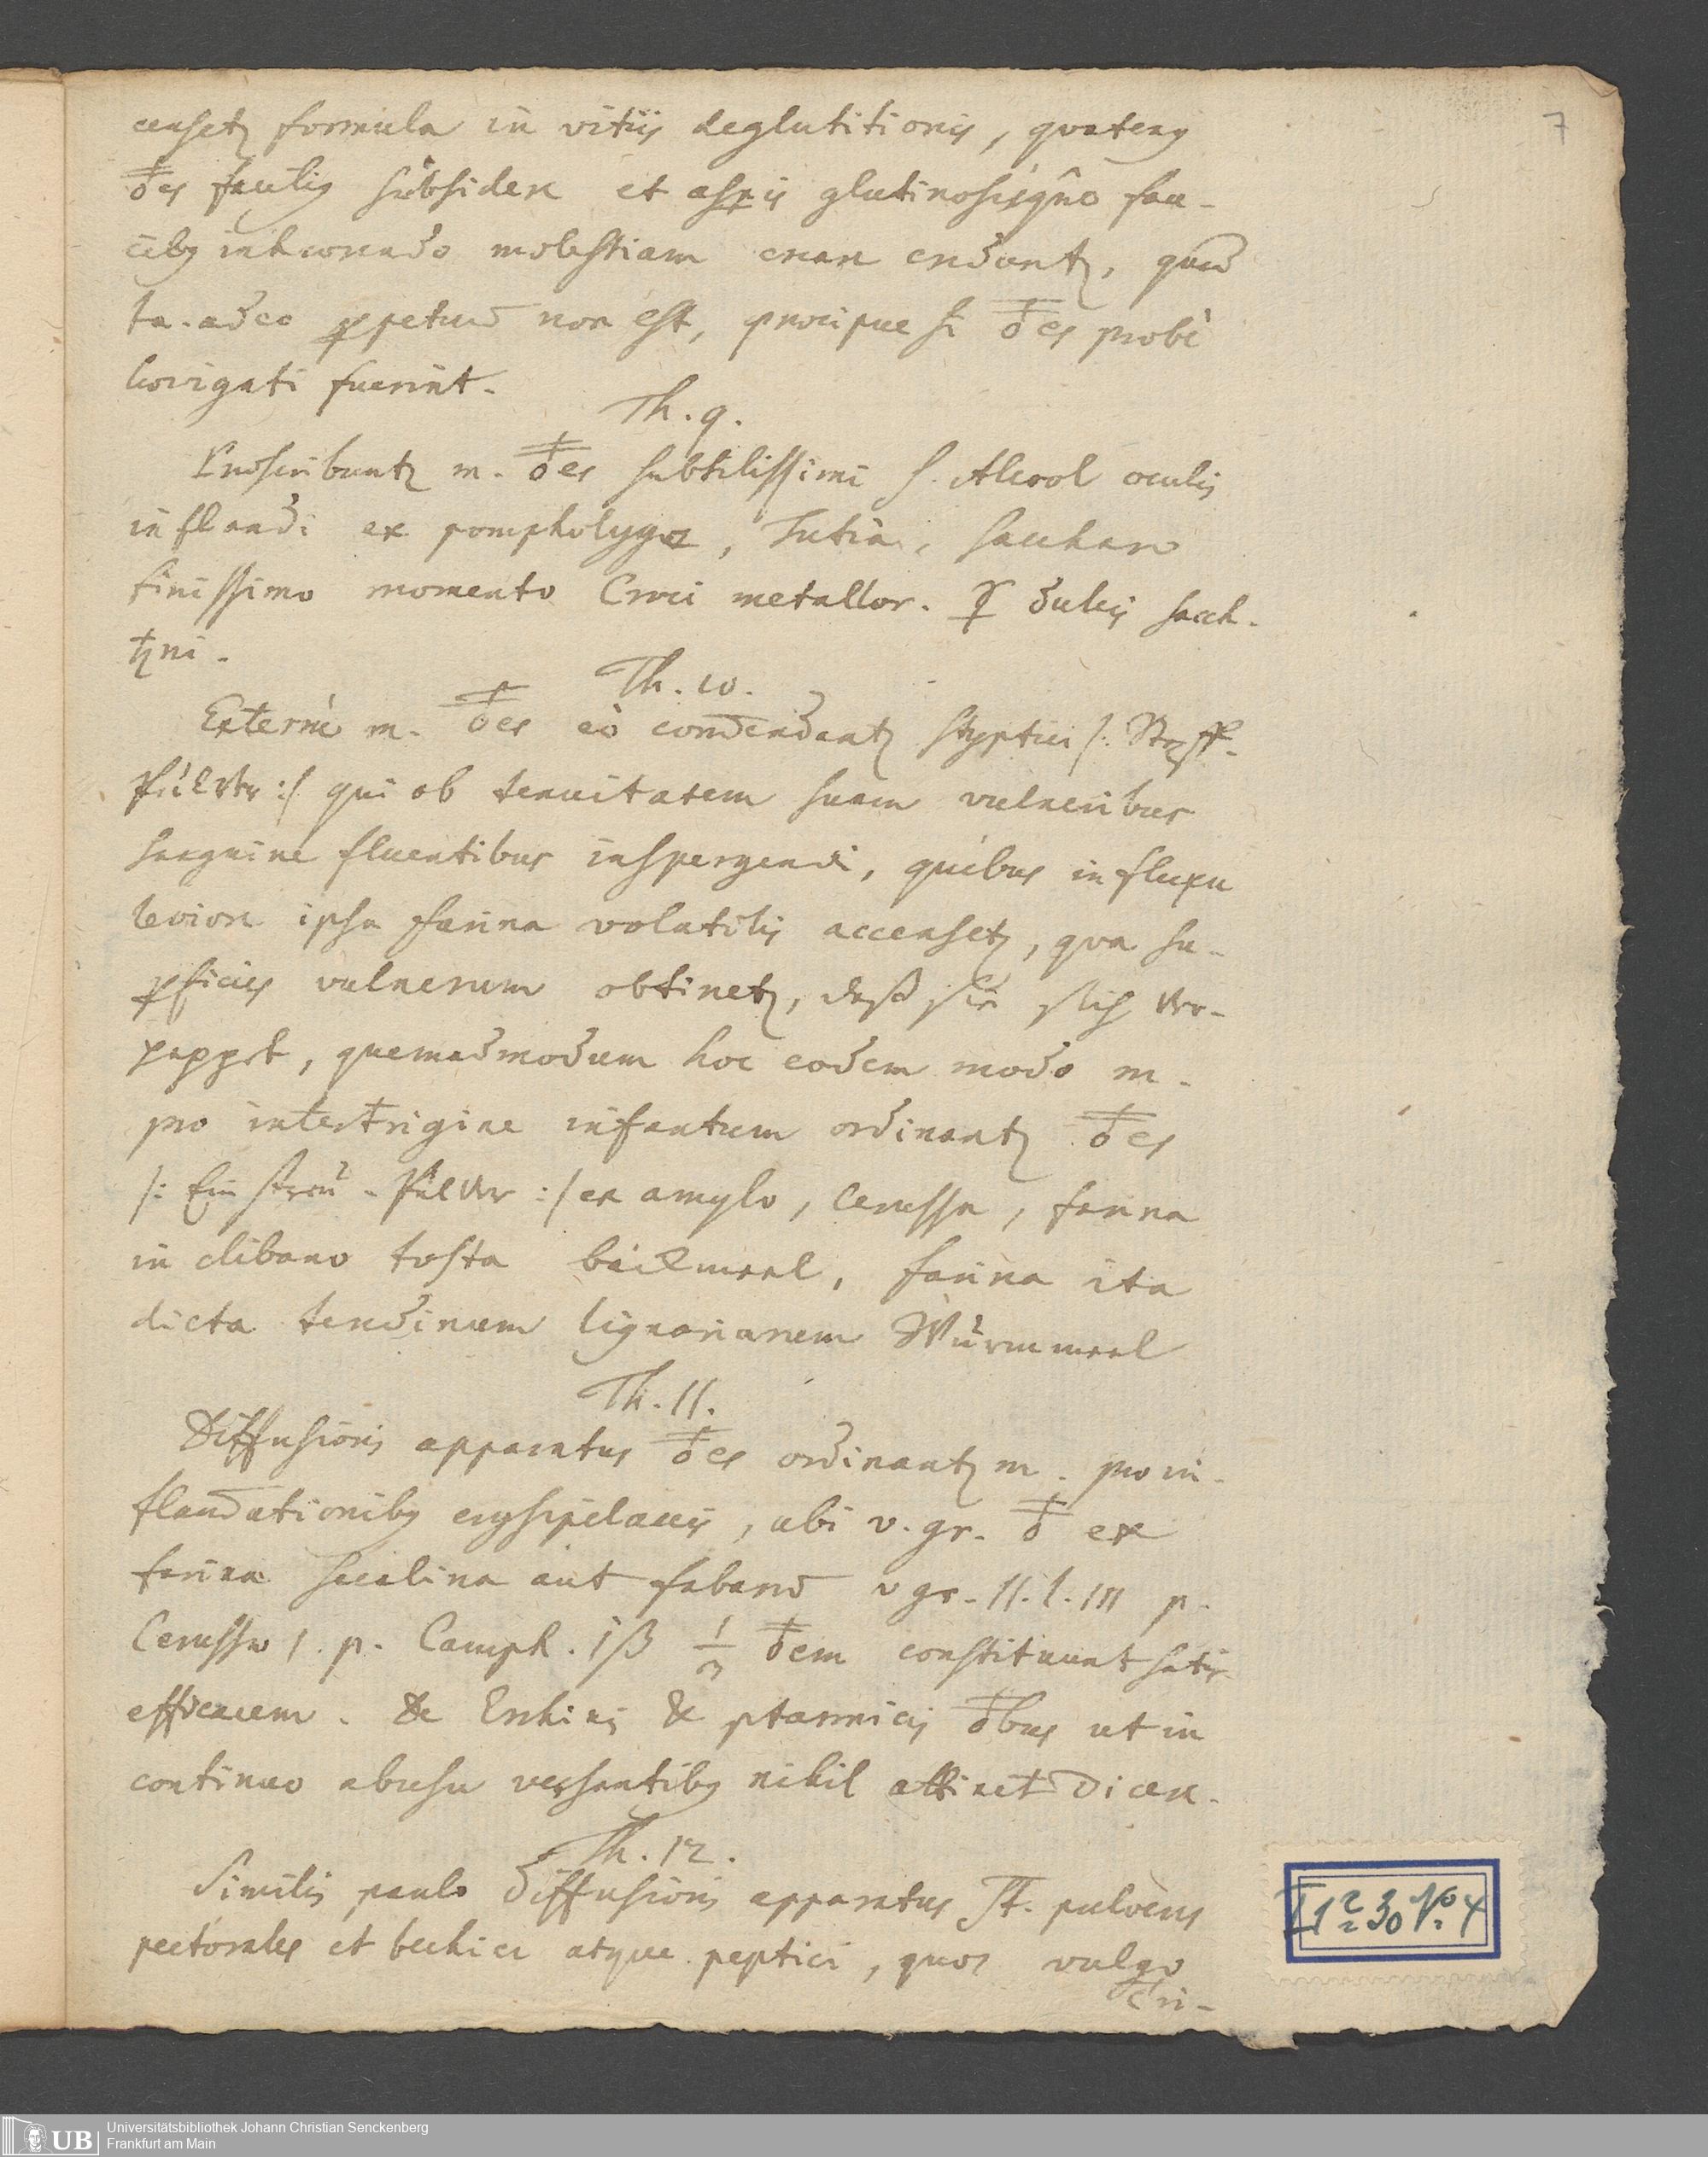 7
censetʒ formula in vitiis deglutitionis, quatenꝰ
♁es facilis subsidere et asris glutinosisque fau-
cibꝰ inhaerendo molestiam creare credantʒ, quod
ta. adeo ꝑpetuum non est, praecipue si ♁es probè
laevigati fuerint.
Th. 9.
Praescribuntʒ m. ♁es subtilissimi s. Alcool oculis
inflandi ex pompholyge, Tutia, saccharo
finissimo momento Croci metallor. ☿ dulcis sacch.
♄ni.
Th. 10.
Externe m. ♁es eò commendantʒ styptici /: Stopff-
Pulver :/ qui ob tenuitatem suam vulneribus
sanguine fluentibus inspergendi, quibus in fluxu
leviore ipsa farina volatilis accensetʒ, qua su-
ꝑficies vulnerum obtinetʒ, daß sie sich ver-
pappet, quemadmodum hoc eodem modo m.
pro intertrigine infantum ordinantʒ ♁es
/: Ein streü-Pulver :/ ex amylo, Cerussa, farina
in clibano tosta backmeel, farina ita
dicta teredinum lignariarum Wurmmeel
Th. 11.
Diffusioris apparatus ♁es ordinantʒ m. pro in-
flammationibꝰ erysipelaceis, ubi v. gr. ♁ ex
farina secalina aut fabarum v gr. II. l. III p.
Cerussae 1. p. Camph. iß ♁em constituunt satis
efficacem. De Errhinis & ptarmicis ♁bus ut in
continuo abusu versantibꝰ nihil attinet dicere.
Th. 12.
Similis paulo diffusioris apparatus st. pulveres
pectorales et bechici atque peptici, quos vulgo
Tri-
I 1 2 30 No. 4
UB Universitätsbibliothek Johann Christian Senckenberg
Frankfurt am Main